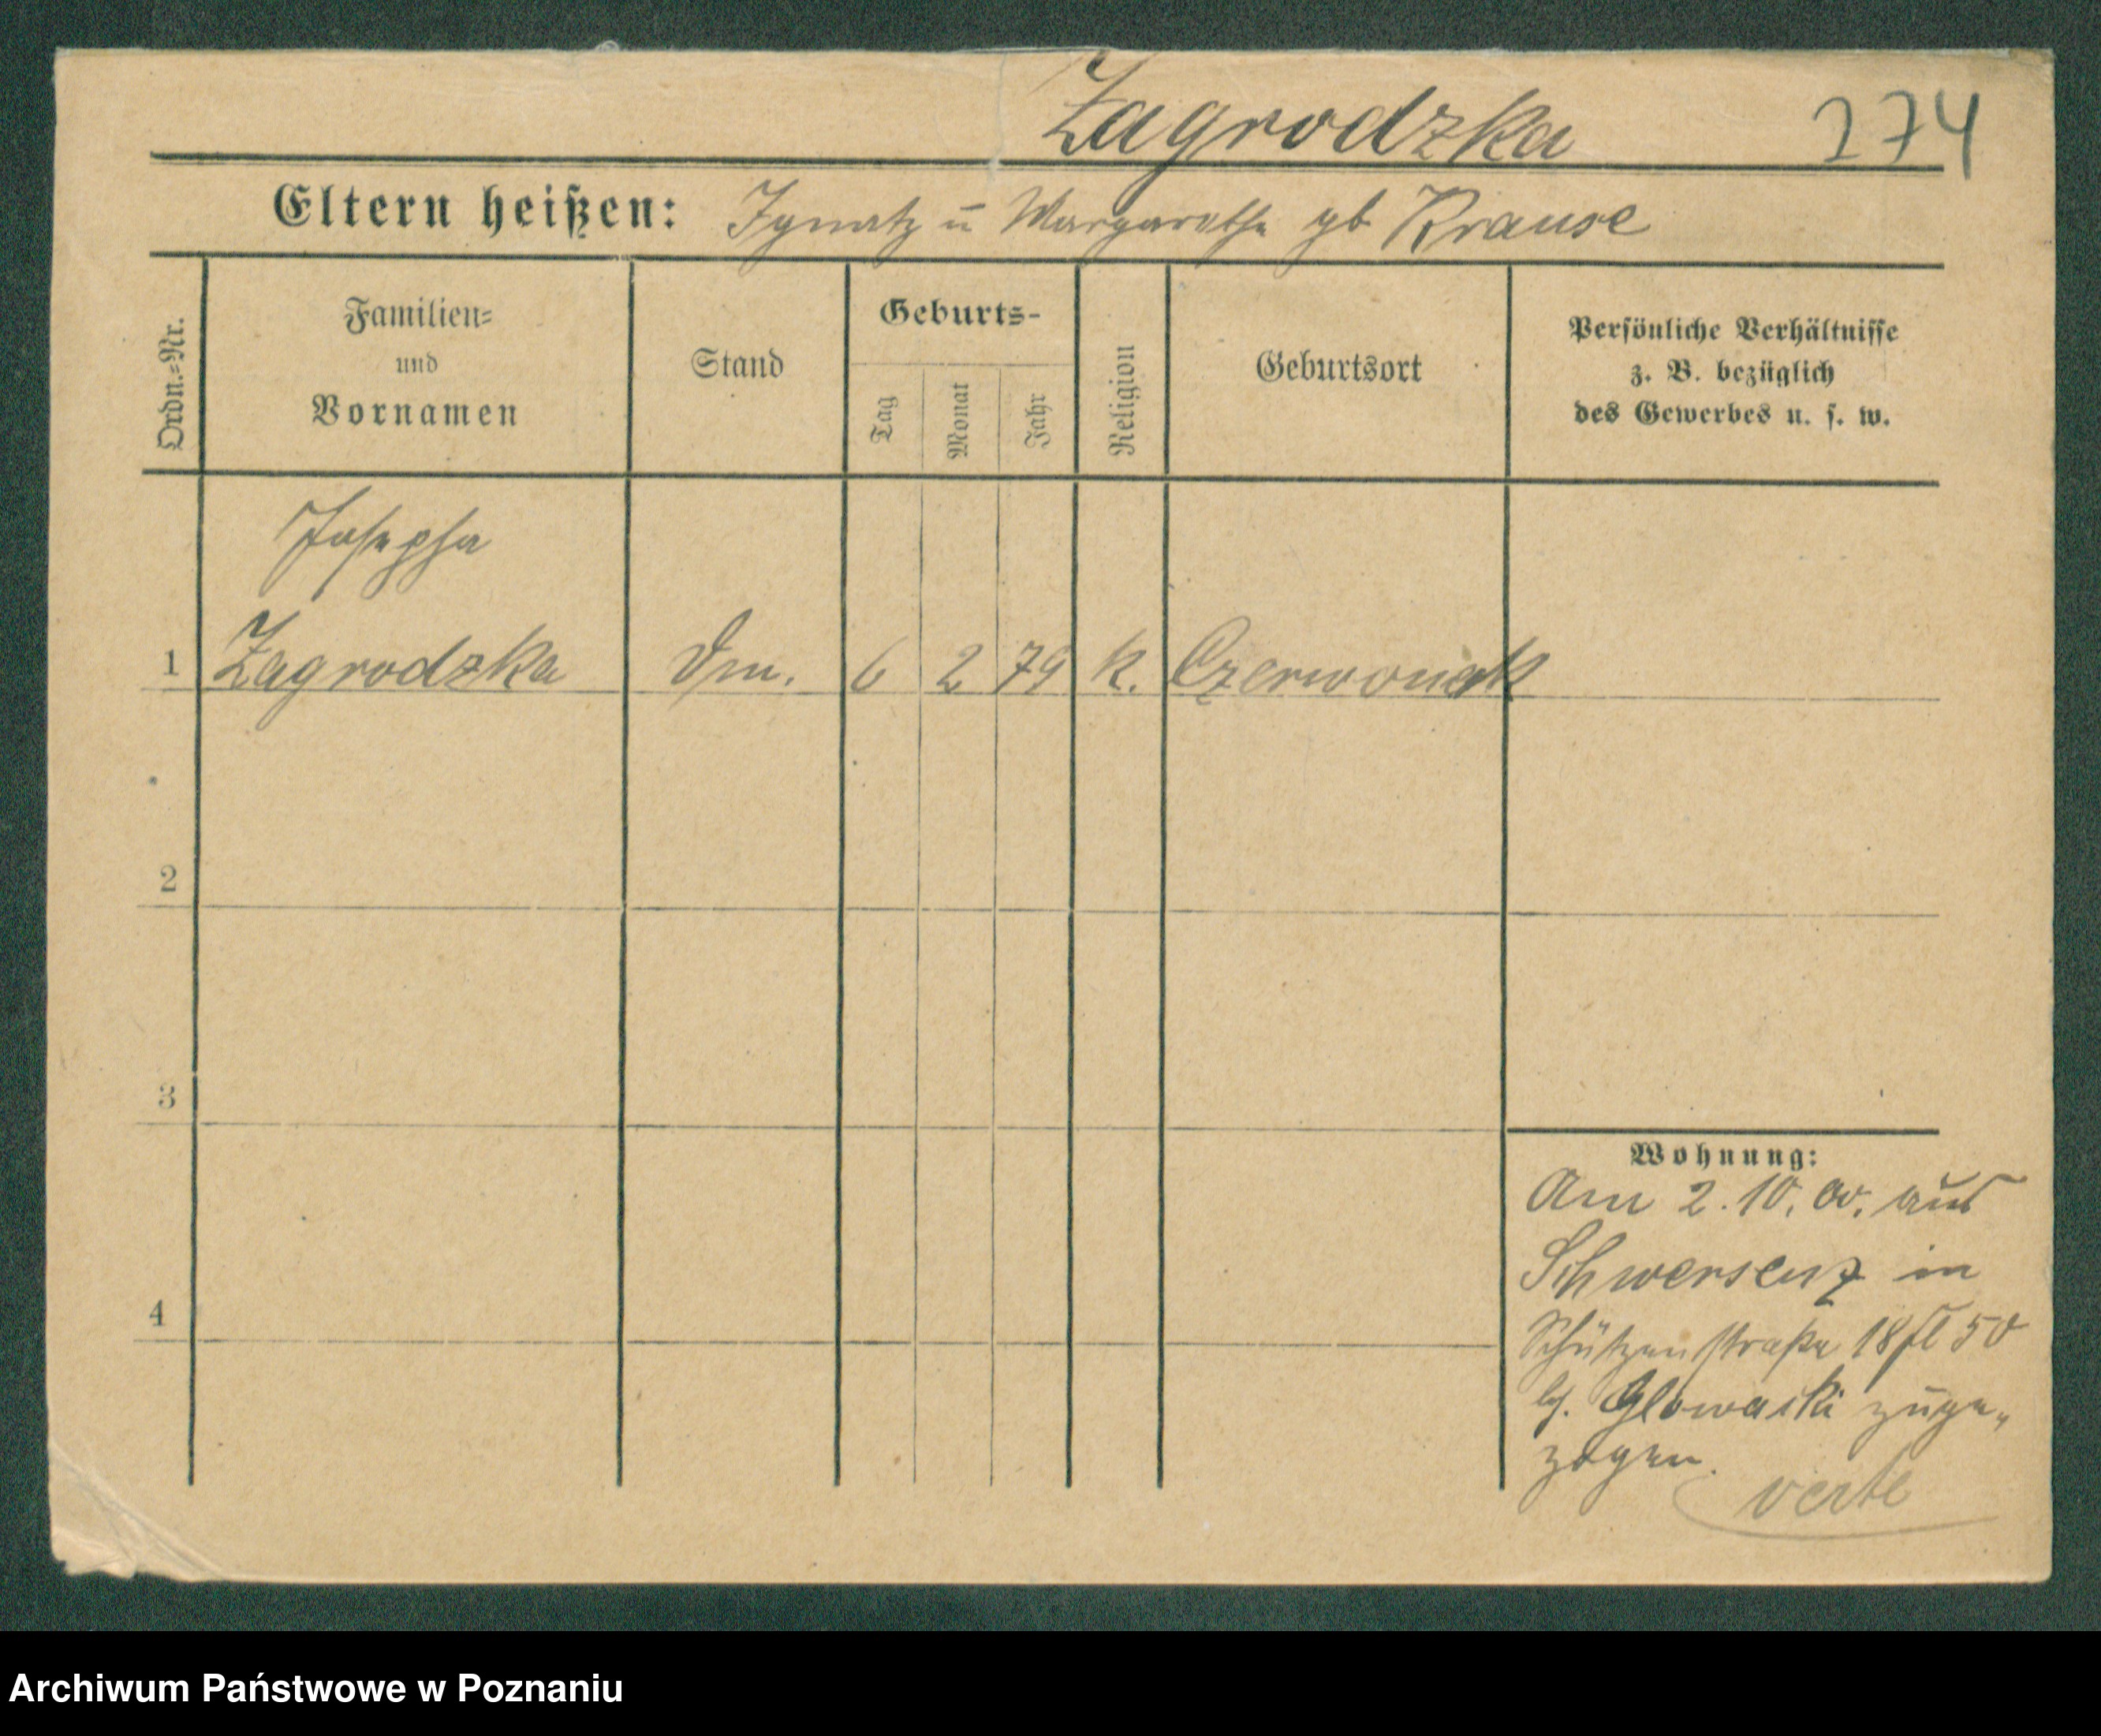 Zagrodzka 274
Eltern heißen: Ignatz u Margarethe gb Krause
Ordn.-Nr.
Familien-
und
Vornamen
Stand
Geburts-
Tag
Monat
Jahr
Religion
Geburtsort
Persönliche Verhältnisse
z. B. bezüglich
des Gewerbes u. s. w.
Josepha
1 Zagrodzka 6 2 79 k. Czerwonak
2
3
4
Wohnung:
Am 2. 10. 00. aus
Schwersenz in
Schützenstraße 18 50
zuge-
zogen.
verte
Archiwum Państwowe w Poznaniu